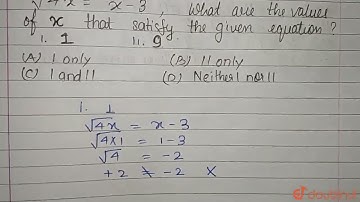 √4x = x-3, what are the values
of x that satisfy the given equation?
I. 1 II. 9
(A) I only (B) II only
(C) I and II (D) Neither I nor II
I. 1
√4x = x-3
√4x1 = 1-3
√4 = -2
+2 ≠ -2 X